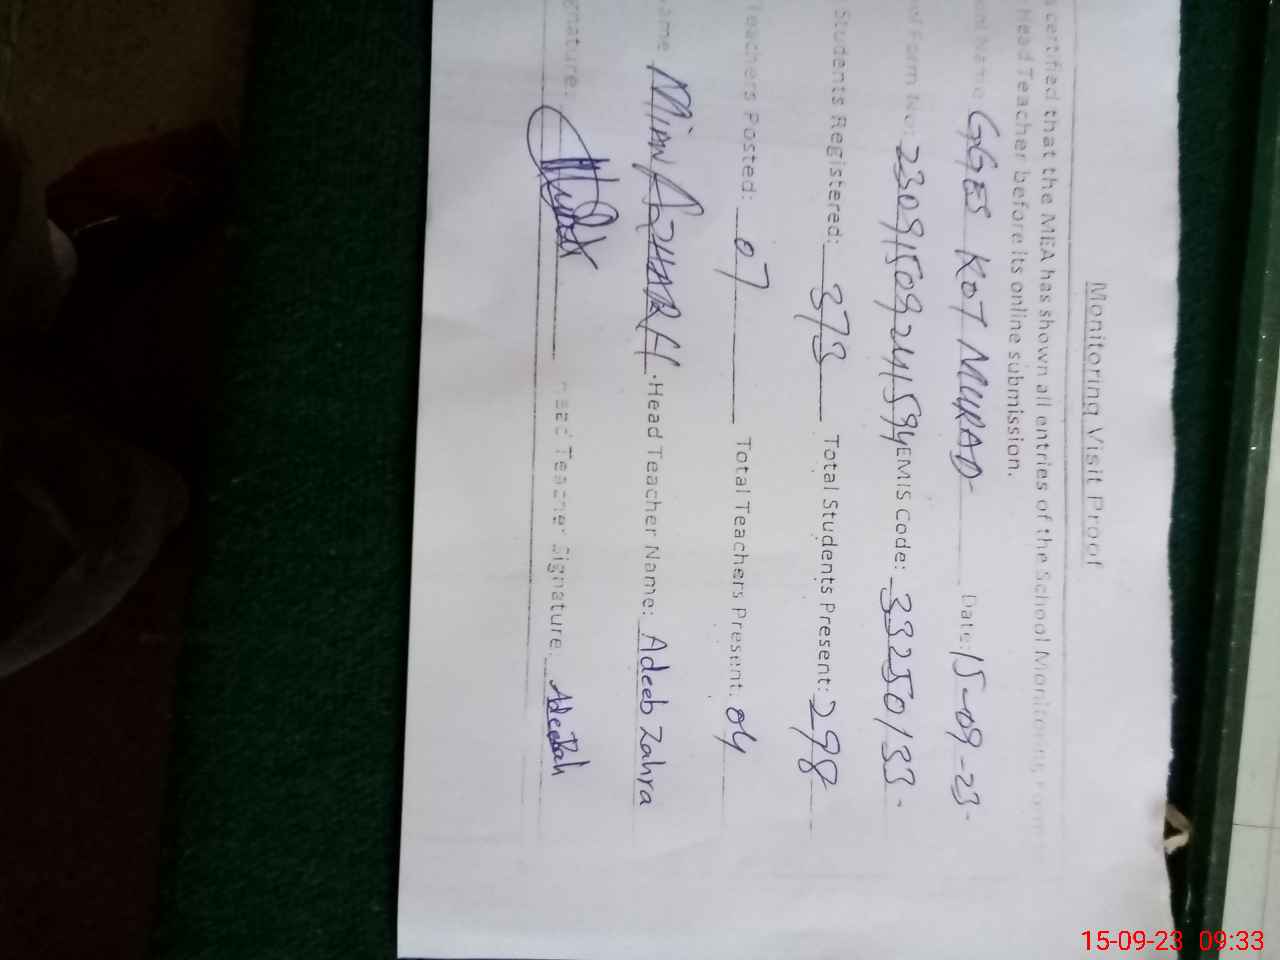 Monitoring Visit Proof
certified that the MEA has shown all entries of the School Monitoring Form
Head Teacher before its online submission.
Name GGES KOT MURAD- Date: 15-09-23-
of Form No: 23091509241594 EMIS Code: 33250133-
Students Registered: 373 Total Students Present: 298
Teachers Posted: 07 Total Teachers Present: 04
ame MIAN AZHAR H. Head Teacher Name: Adeeb Zahra
gnature: Head Teacher Signature: Adeebah
15-09-23 09:33